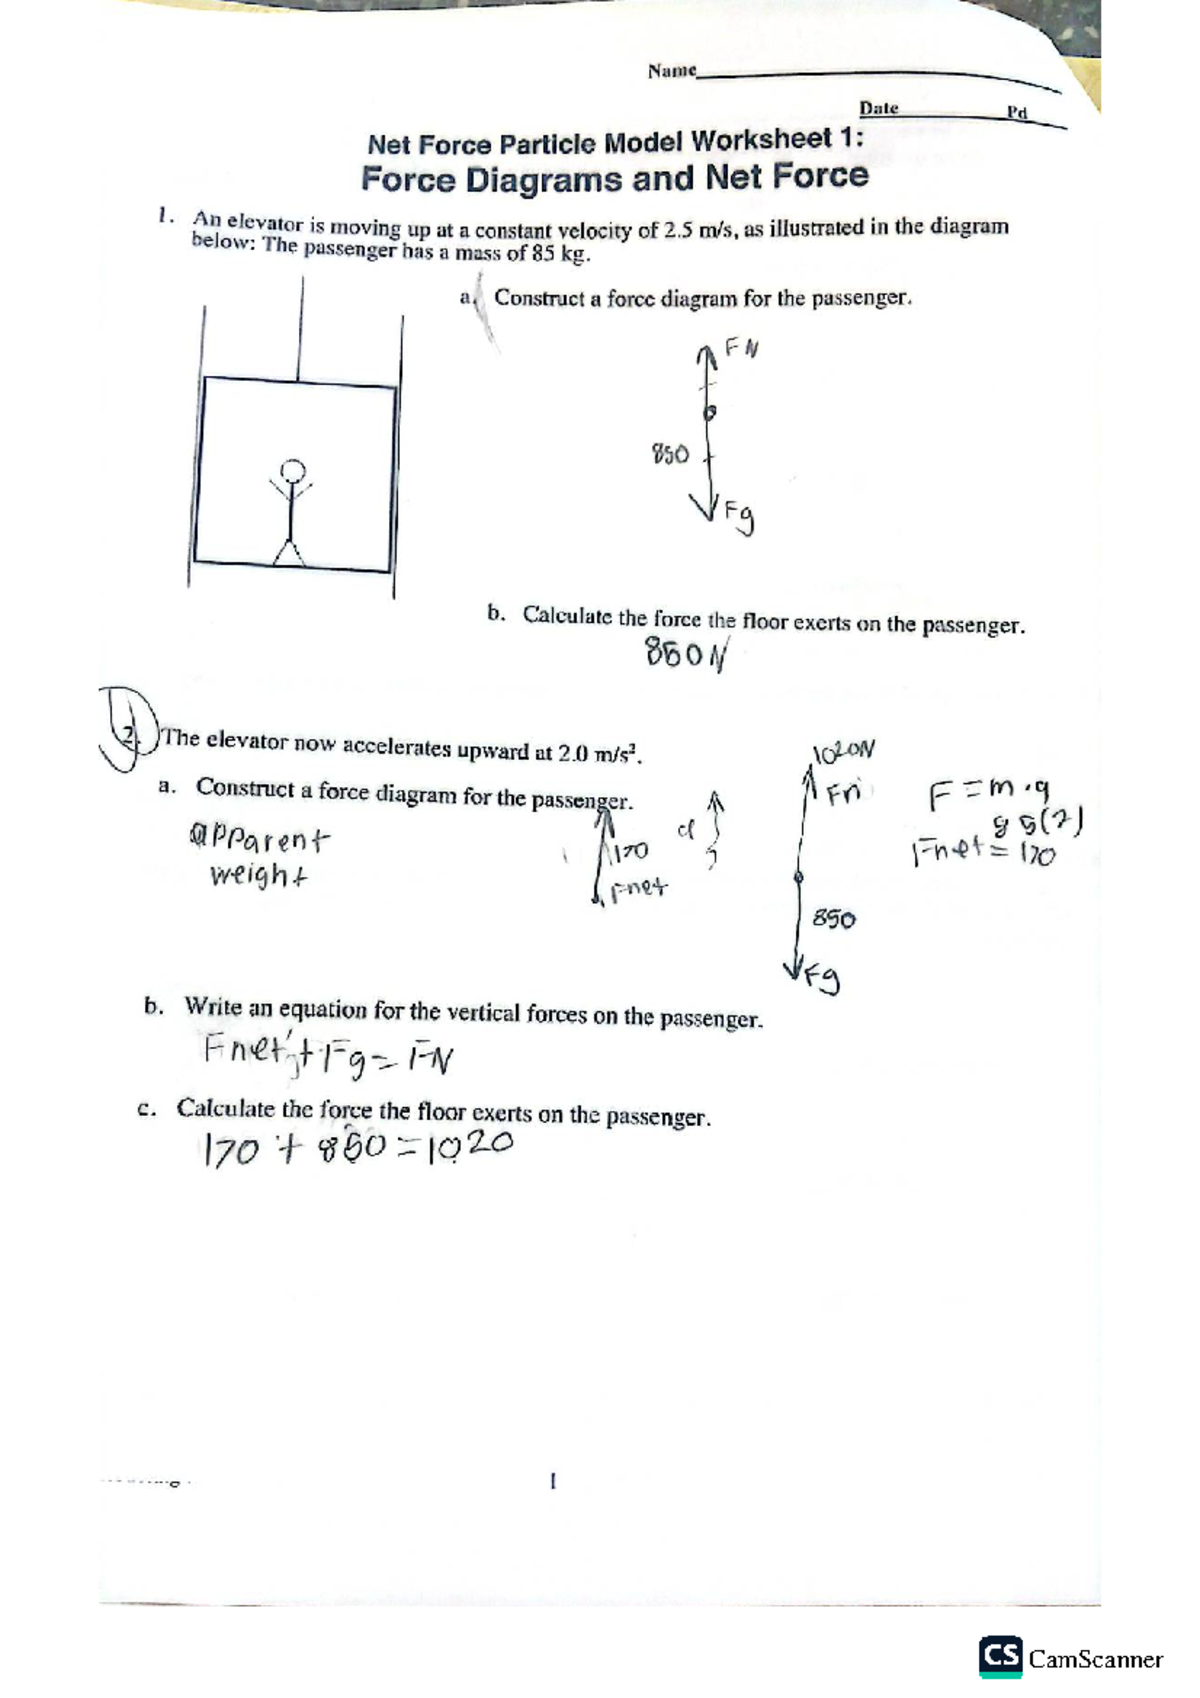 Name
Date Pd
Net Force Particle Model Worksheet 1:
Force Diagrams and Net Force
1. An elevator is moving up at a constant velocity of 2.5 m/s, as illustrated in the diagram
below: The passenger has a mass of 85 kg.
a. Construct a force diagram for the passenger.
FN
850
Fg
b. Calculate the force the floor exerts on the passenger.
850N
2. The elevator now accelerates upward at 2.0 m/s².
a. Construct a force diagram for the passenger.
apparent
weight
170
Fnet
a
1020N
Fn
850
Fg
F=m·a
85(2)
Fnet = 170
b. Write an equation for the vertical forces on the passenger.
Fnet + Fg = FN
c. Calculate the force the floor exerts on the passenger.
170 + 850 = 1020
1
CS CamScanner